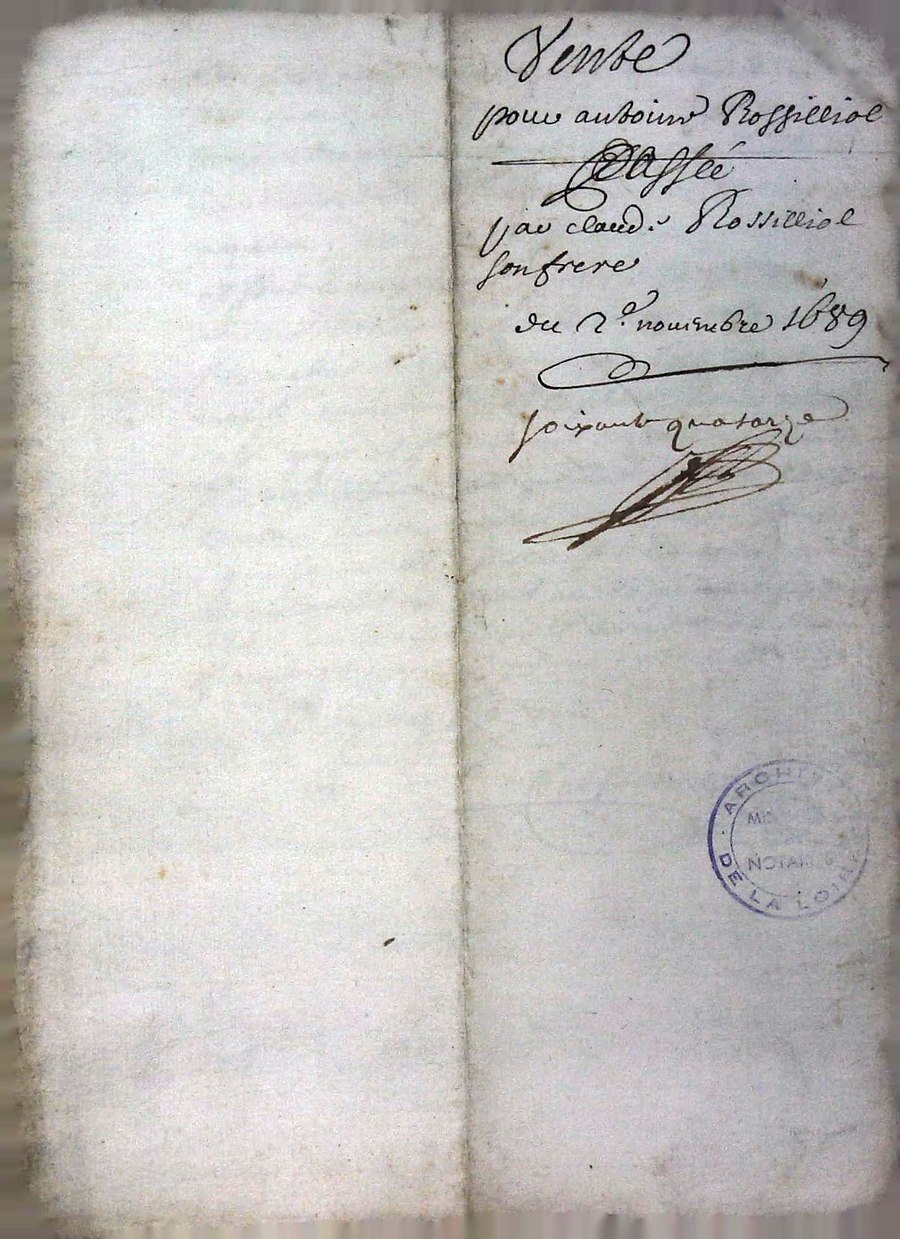 Vente
pour antoine Rossilliol
Passée
par claude Rossilliol
son frere
du 2e. nouembre 1689
soixante quatorze
ARCHIVES DE LA LOIRE
NOTAI